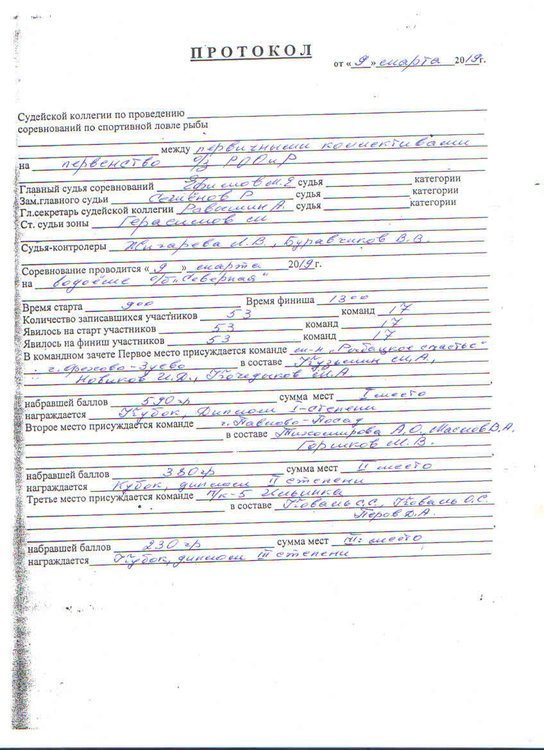 ПРОТОКОЛ
от «9» марта 2019г.
Судейской коллегии по проведению
соревнований по спортивной ловле рыбы
между первичными коллективами
на первенство РООиР
Главный судья соревнований Ефимов М.Е судья категории
Зам.главного судьи Семенов Р. судья категории
Гл.секретарь судейской коллегии А. судья категории
Ст. судьи зоны Герасимов М
Судья-контролеры Жигарева Л.В, Буравчиков В.В.
Соревнование проводится «9» марта 2019г.
на водоеме о/б "Северная"
Время старта 900 Время финиша 1300
Количество записавшихся участников 53 команд 17
Явилось на старт участников 53 команд 17
Явилось на финиш участников 53 команд 17
В командном зачете Первое место присуждается команде м-н "Рыбацкое счастье"
г. Орехово-Зуево в составе Кузьмин М,А,
Новиков И.Д., М.А
набравшей баллов 590 гр сумма мест I место
награждается Кубок, Диплом 1-степени
Второе место присуждается команде г. Павлово-Посад
в составе Тихомирова А.О, Маслов В.А.
Горшков М.В.
набравшей баллов 380 гр сумма мест II место
награждается Кубок, диплом II степени
Третье место присуждается команде п/к-5 Ильинка
в составе Коваль С,С, Коваль О.С
Перов Д.А.
набравшей баллов 230 гр сумма мест III место
награждается Кубок, диплом III степени